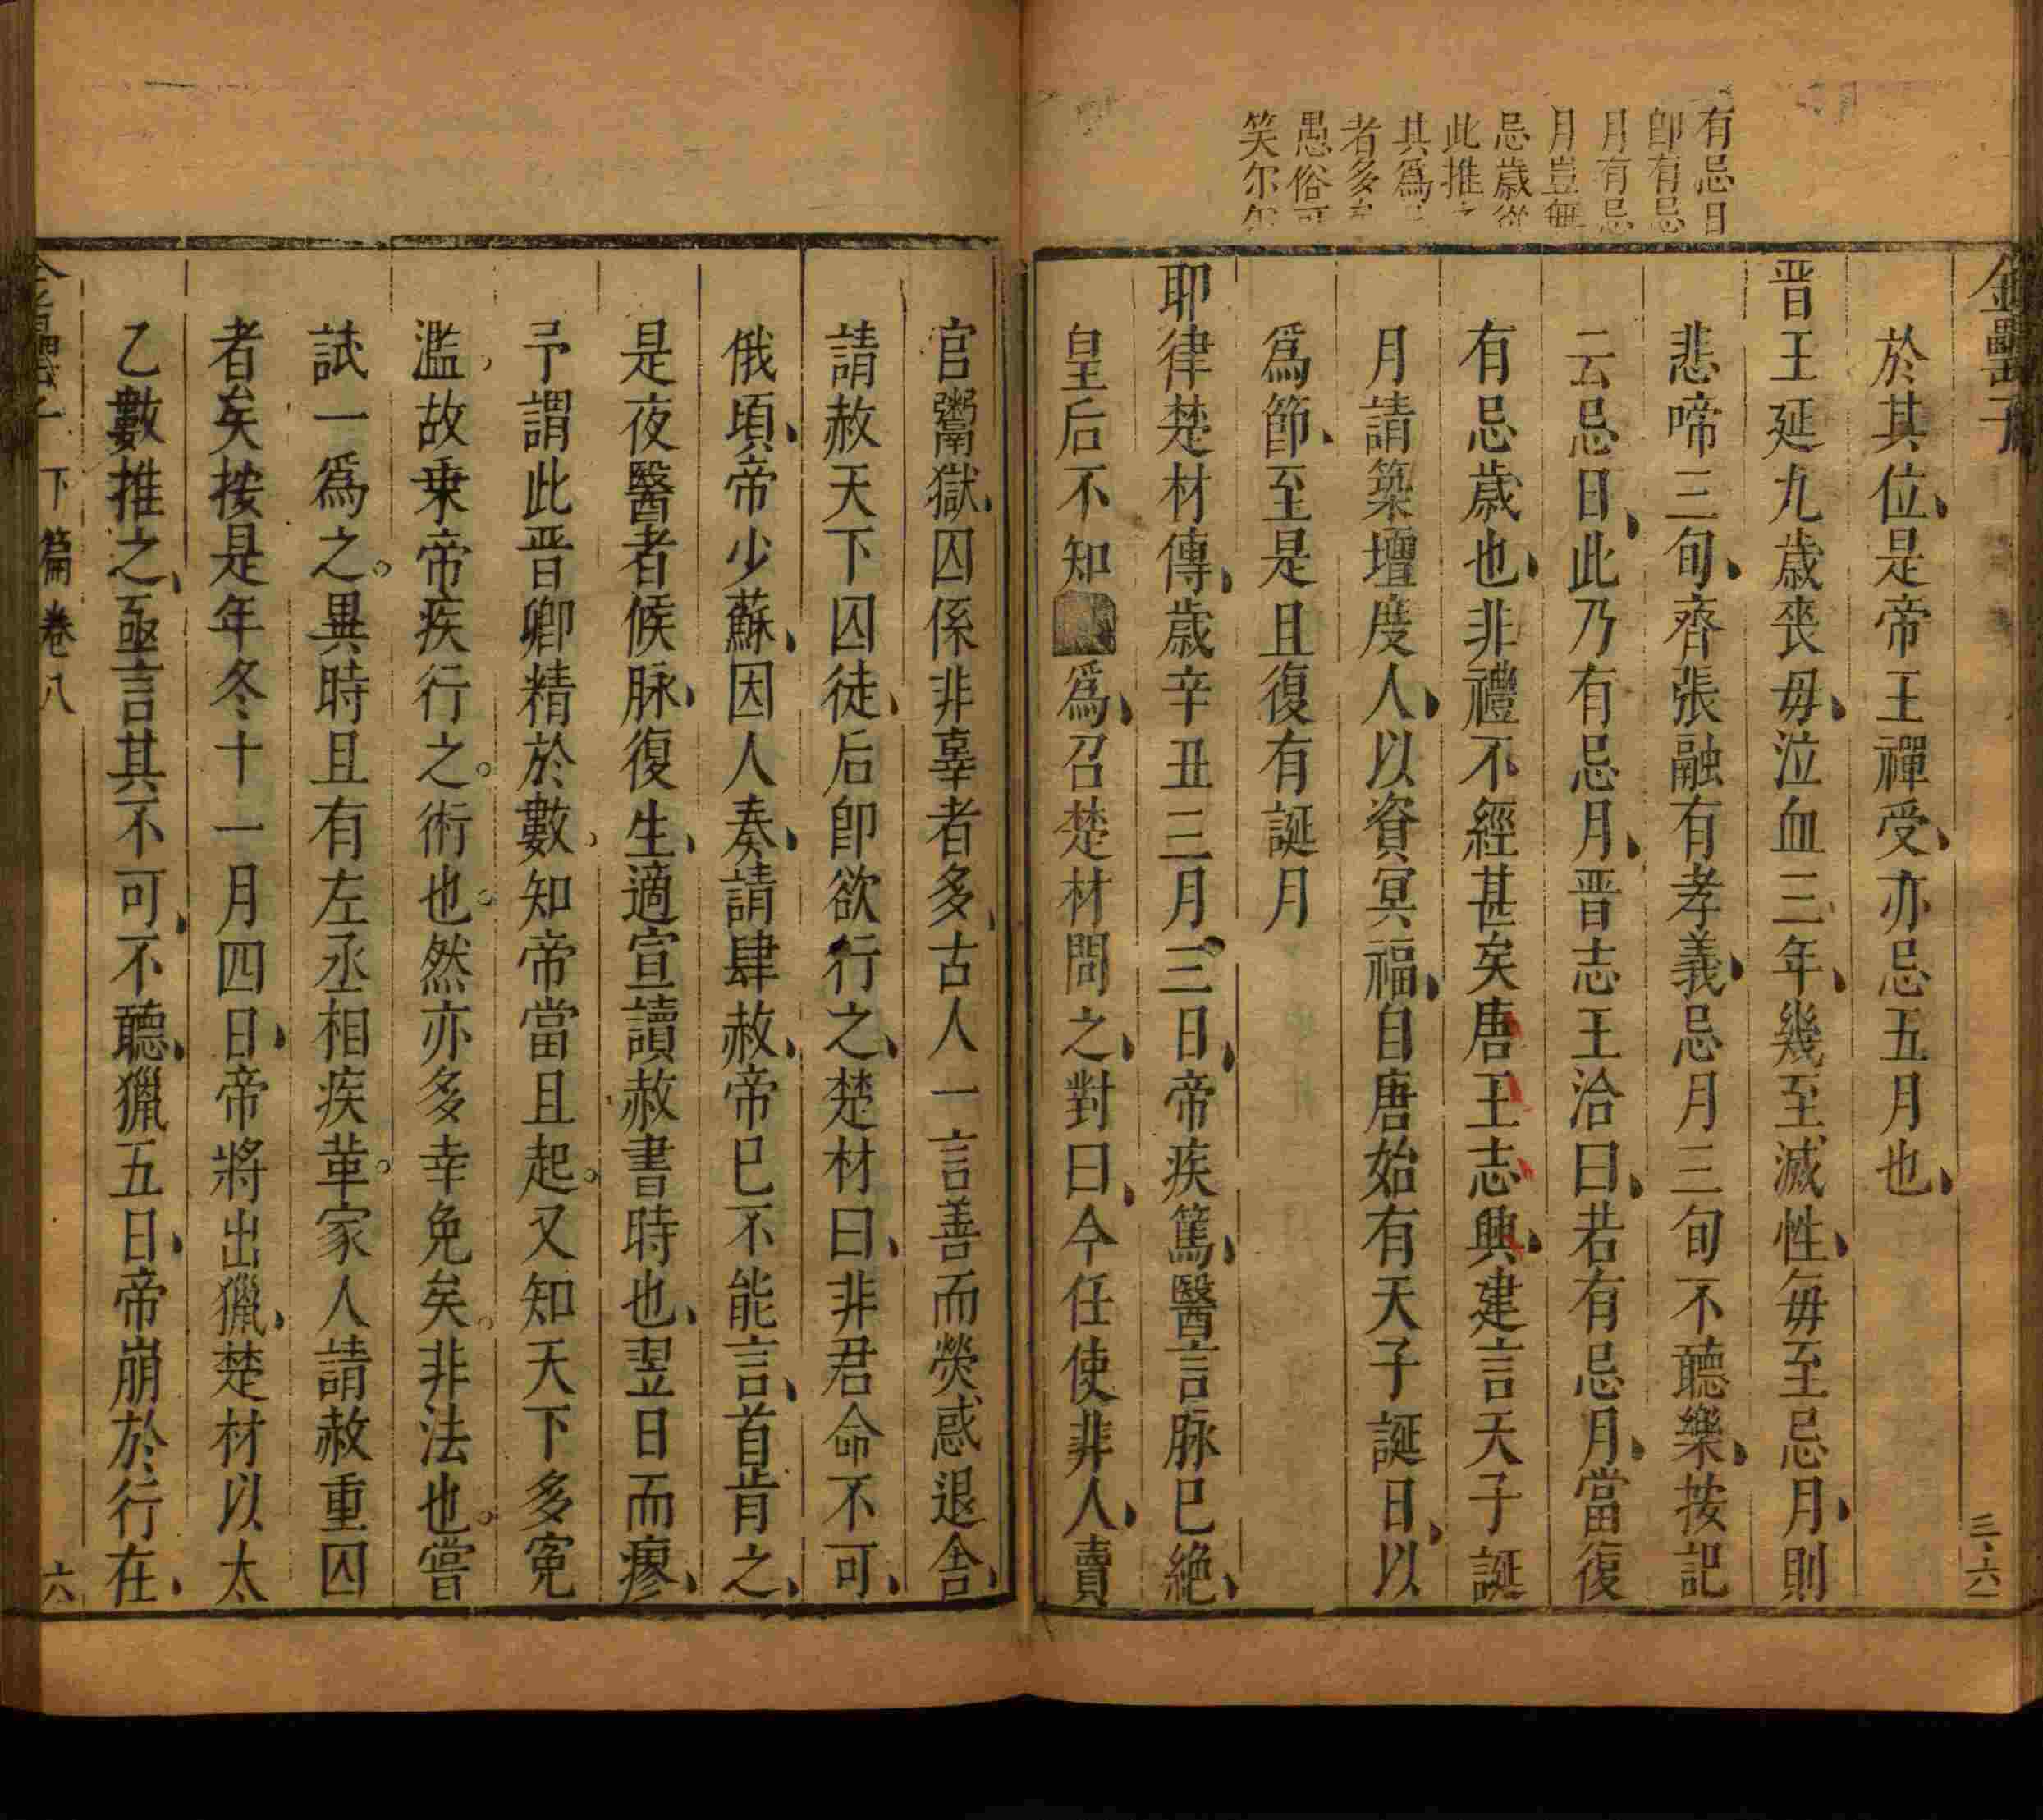 有忌日
即有忌
月有忌
月豈無
忌歲從
此推之
其爲
者多
愚俗可
笑尔
金罍子
三六
於其位是帝王禪受亦忌五月也
晉王延九歲喪母泣血三年幾至滅性每至忌月則
悲啼三旬齊張融有孝義忌月三旬不聽樂按記
云忌日此乃有忌月晉志王洽曰若有忌月當復
有忌歲也非禮不經甚矣唐王志興建言天子誕
月請築壇度人以資冥福自唐始有天子誕日以
爲節至是且復有誕月
耶律楚材傳歲辛丑三月三日帝疾篤醫言脉已絶
皇后不知爲召楚材問之對曰今任使非人賣
官鬻獄囚係非辜者多古人一言善而熒惑退舍
請赦天下囚徒后卽欲行之楚材曰非君命不可
俄頃帝少蘇因人奏請肆赦帝已不能言首肯之
是夜醫者候脉復生適宣讀赦書時也翌日而瘳
予謂此晉卿精於數知帝當且起又知天下多冤
濫故乗帝疾行之術也然亦多幸免矣非法也嘗
試一爲之異時且有左丞相疾革家人請赦重囚
者矣按是年冬十一月四日帝將出獵楚材以太
乙數推之亟言其不可不聽獵五日帝崩於行在
金罍子 下篇卷八
六